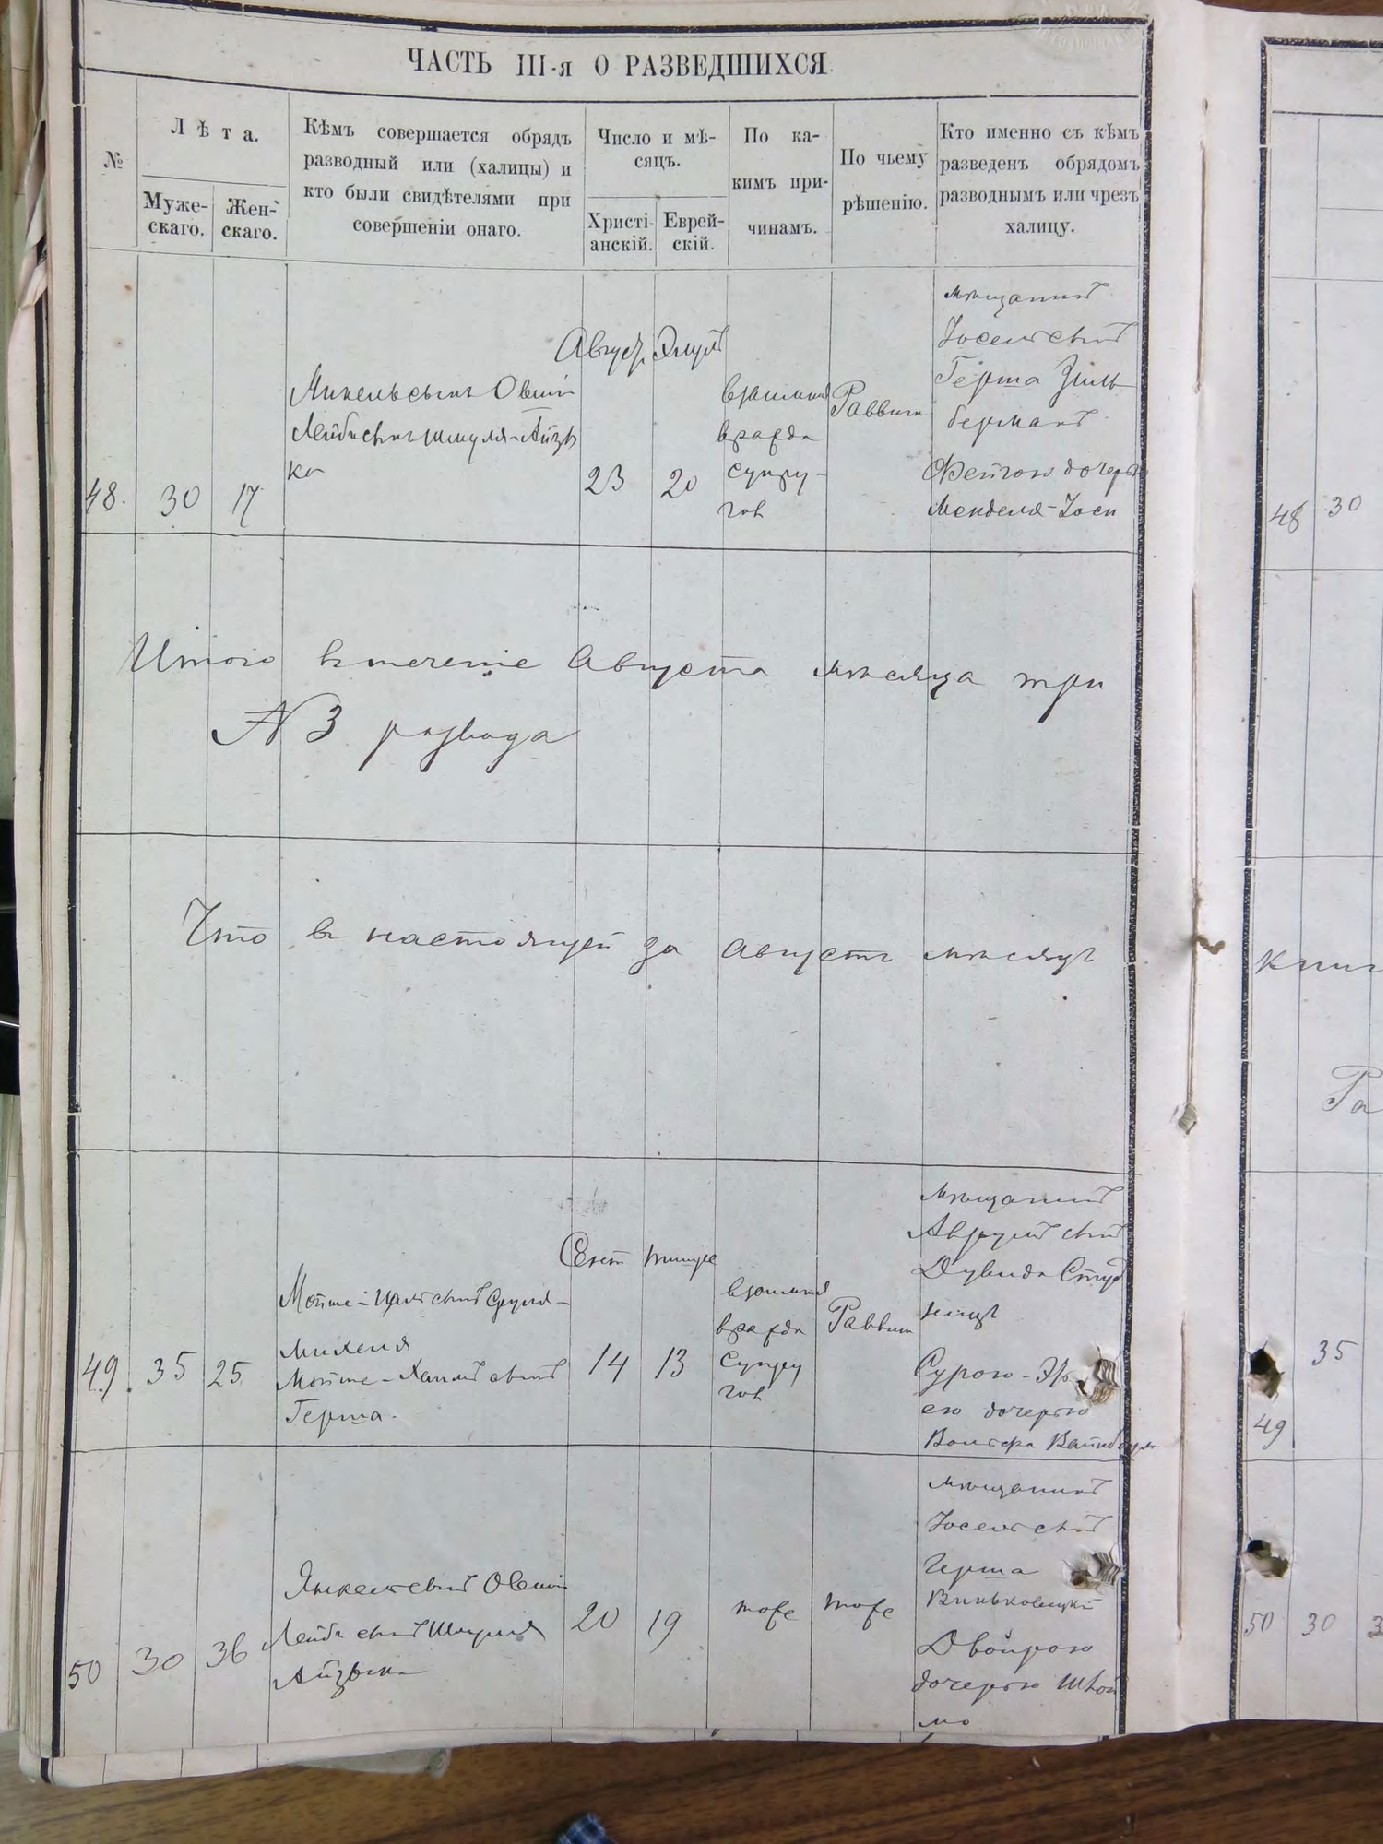 ЧАСТЬ III-я О РАЗВЕДШИХСЯ.
№
Лѣта.
Муже-
скаго.
Жен-
скаго.
Кѣмъ совершается обрядъ
разводный или (халицы) и
кто были свидѣтелями при
совершеніи онаго.
Число и мѣ-
сяцъ.
Христі-
анскій.
Еврей-
скій.
По ка-
кимъ при-
чинамъ.
По чьему
рѣшенію.
Кто именно съ кѣмъ
разведенъ обрядомъ
разводнымъ или чрезъ
халицу.
48.
30
17
Овшій
Лейбисынъ Шмуля-Айзи
ка
Август
23
Элулъ
20
взаимная
вражда
супру-
говъ
Раввинъ
мѣщанинъ
Іоселевъ сынъ
Герша Зиль
берманъ
Фейгою дочерью
Менделя-Іоси
Итого въ теченіе Августа мѣсяца три
№ 3 развода
Что въ настоящей за Августъ мѣсяцъ
49.
35
25
Мойше-
Сруля-
Михеля
Мойше-Хаимъ сынъ
Герша.
Сент
14
тишре
13
взаимная
вражда
супру
говъ
Раввинъ
мѣщанинъ
Аврумъ сынъ
Дувида
Сурою-
ею дочерью
Волька
50
30
36
Янкель сынъ Овшій
Лейба сынъ Шмуля
Айзика
20
19
тоже
тоже
мѣщанинъ
Іосель сынъ
Герша
Виньковецкій
Двойрою
дочерью Шлой
мо
48
30
книг
Ра
35
49
50
30
3